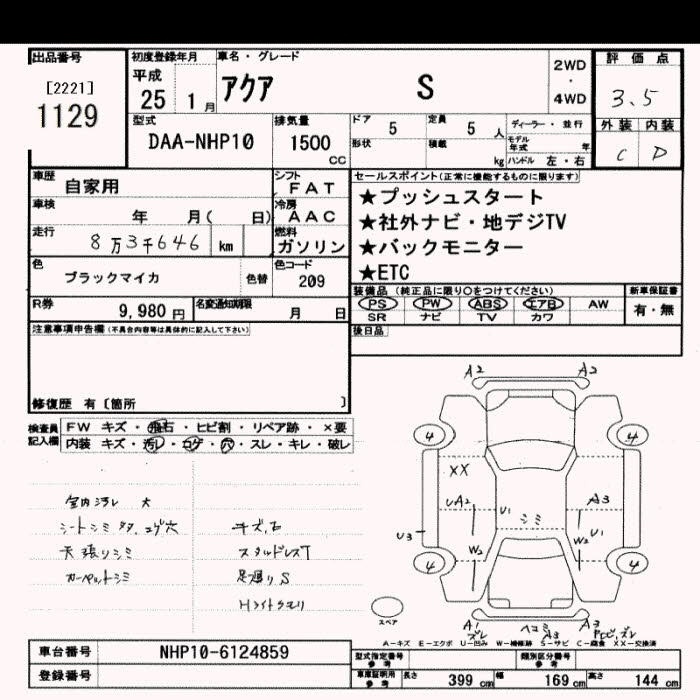 出品番号
[2221]
1129
初度登録年月
平成
25 1 月
車名・グレード
アクア S
2WD
・
4WD
評価点
3.5
外装 内装
C D
型式
DAA-NHP10
排気量
1500
CC
ドア 5
定員 5 人
ディーラー・並行
形状
積載 kg
モデル年式 年
ハンドル 左・右
車歴 自家用
シフト FAT
車検 年 月( 日)
冷房 AAC
走行 8万3千646 km
燃料 ガソリン
色 ブラックマイカ 色替
色コード 209
R券 9,980 円
名変通知期限 月 日
セールスポイント(正常に機能するものに限ります)
★プッシュスタート
★社外ナビ・地デジTV
★バックモニター
★ETC
装備品(純正品に限り○をつけてください)
PS PW ABS エアB AW
SR ナビ TV カワ
新車保証書
有・無
後日品
注意事項申告欄(不具合内容等は具体的に記入して下さい)
修復歴 有〔箇所 〕
検査員記入欄
FW キズ・飛石・ヒビ割・リペア跡・×要
内装 キズ・汚レ・コゲ・穴・スレ・キレ・破レ
室内汚レ 大
天張りシミ
カーペットシミ
キズ,石
スタッドレスT
足廻りS
Hライトクモリ
A2 A2
4 4
XX
UA2 U1 A3
シミ
U3 W2 W2 U1
4 4
A1 ズレ ヘコミ A3 A3
スペア
A−キズ E−エクボ U−凹み W−補修跡 S−サビ C−腐食 XX−交換済
車台番号 NHP10-6124859
登録番号
型式指定番号 参考
類別区分番号 参考
車庫証明用 参考
長さ 399 cm 幅 169 cm 高さ 144 cm